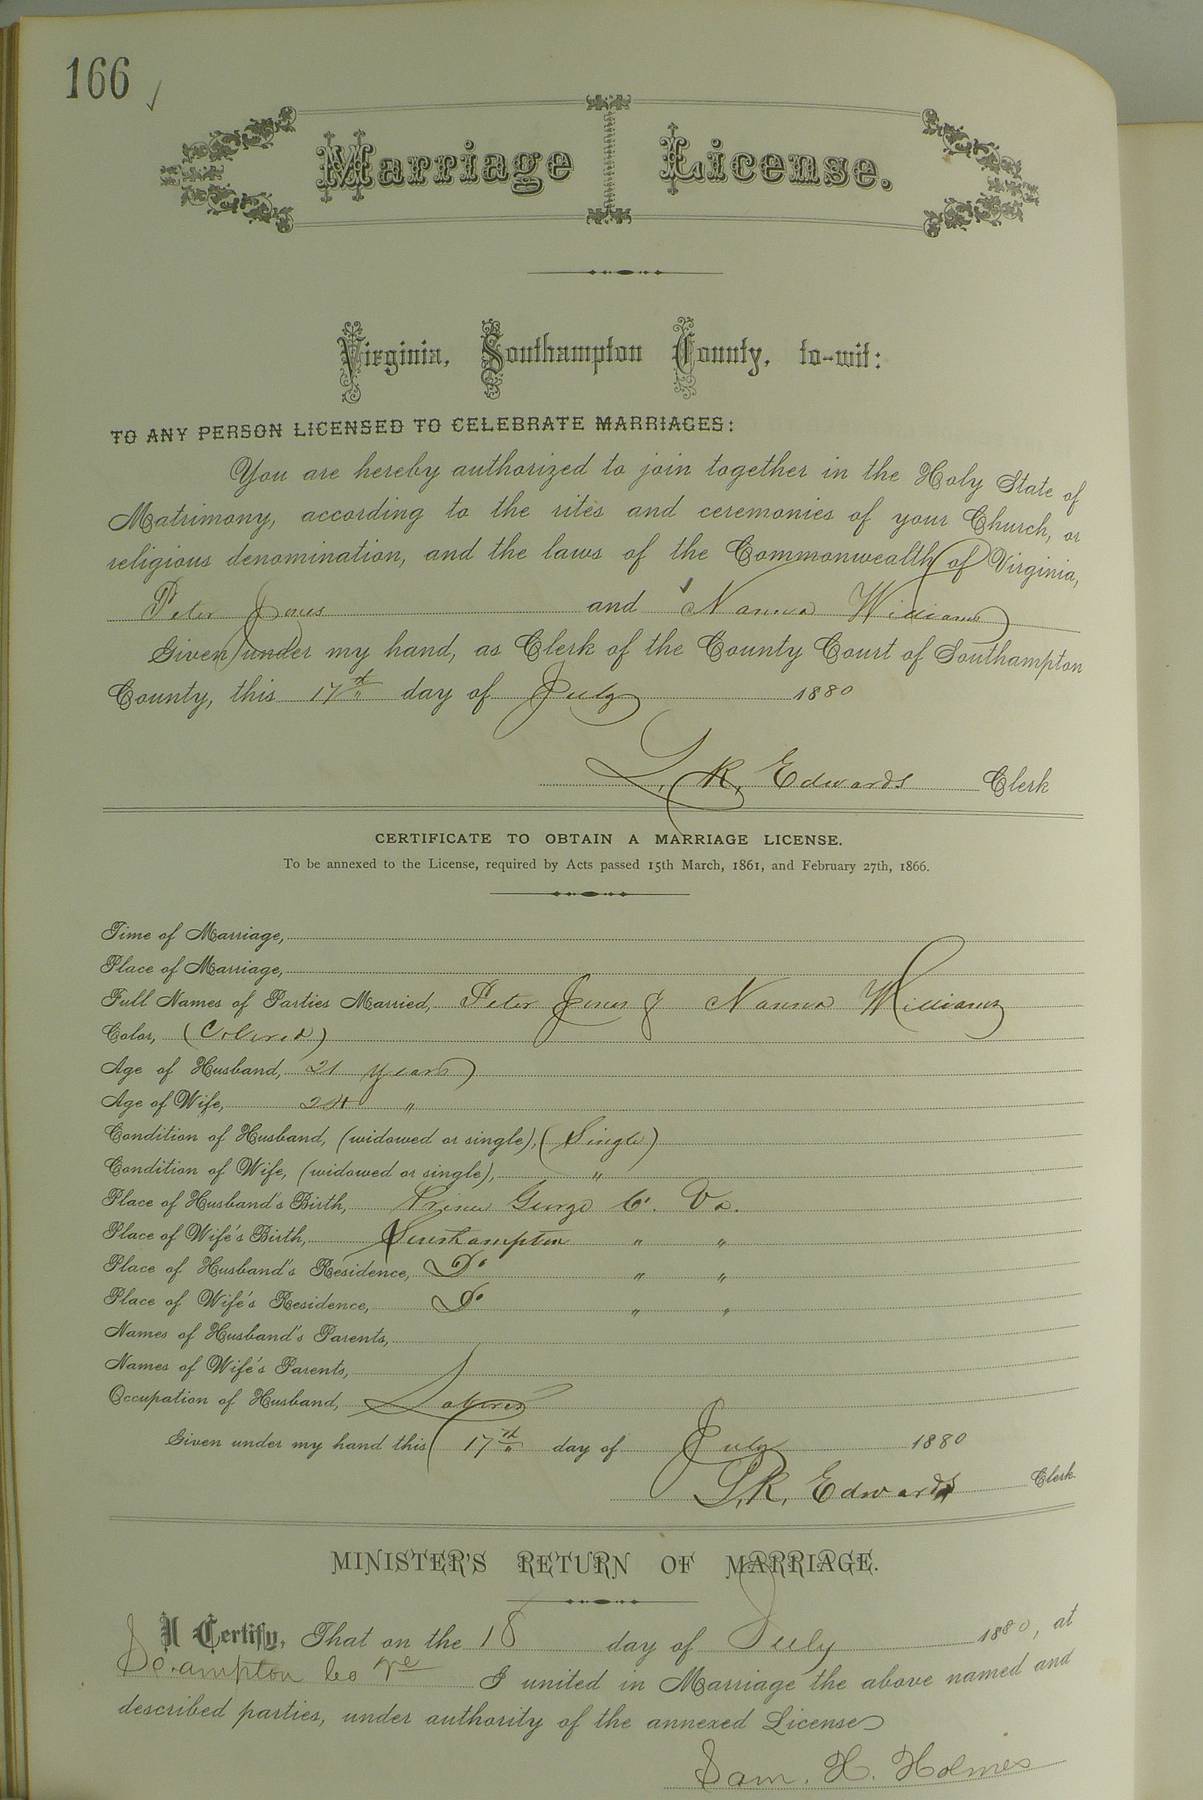 166 ✓
Marriage License.
Virginia, Southampton County, to-wit:
TO ANY PERSON LICENSED TO CELEBRATE MARRIAGES:
You are hereby authorized to join together in the Holy State of
Matrimony, according to the rites and ceremonies of your Church, or
religious denomination, and the laws of the Commonwealth of Virginia,
Peter Jones and Nanna Williams
Given under my hand, as Clerk of the County Court of Southampton
County, this 17th day of July 1880
L. R. Edwards Clerk
CERTIFICATE TO OBTAIN A MARRIAGE LICENSE.
To be annexed to the License, required by Acts passed 15th March, 1861, and February 27th, 1866.
Time of Marriage,
Place of Marriage,
Full Names of Parties Married, Peter Jones & Nanna Williams
Color, (Colored)
Age of Husband, 21 years
Age of Wife, 24 "
Condition of Husband, (widowed or single), (Single)
Condition of Wife, (widowed or single), "
Place of Husband's Birth, Prince George Co. Va.
Place of Wife's Birth, Southampton " "
Place of Husband's Residence, Do " "
Place of Wife's Residence, Do " "
Names of Husband's Parents,
Names of Wife's Parents,
Occupation of Husband, Laborer
Given under my hand this 17th day of July 1880
L. R. Edwards Clerk
MINISTER'S RETURN OF MARRIAGE.
I Certify, That on the 18 day of July 1880, at
So.ampton Co Va I united in Marriage the above named and
described parties, under authority of the annexed License
Sam. H. Holmes